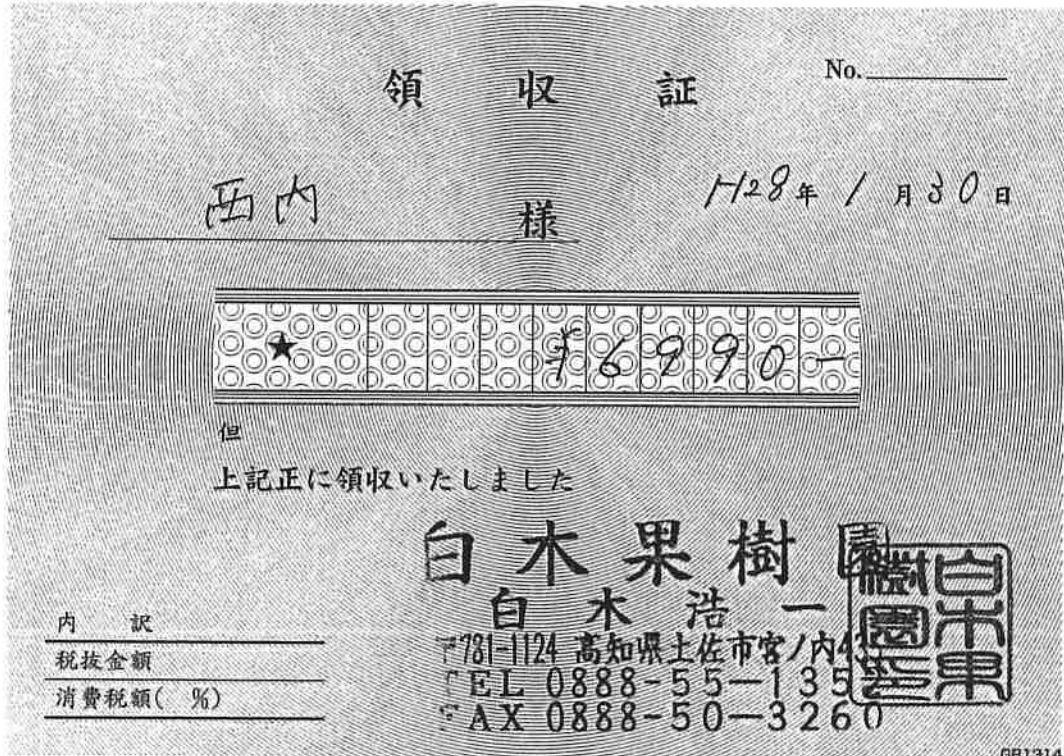 No.
領収証
西内 様
H28年1月30日
★ ¥6990-
但
上記正に領収いたしました
白木果樹園
白木浩一
〒781-1124 高知県土佐市宮ノ内
TEL 0888-55-135
FAX 0888-50-3260
白木果樹園印
内訳
税抜金額
消費税額( %)
GB1314